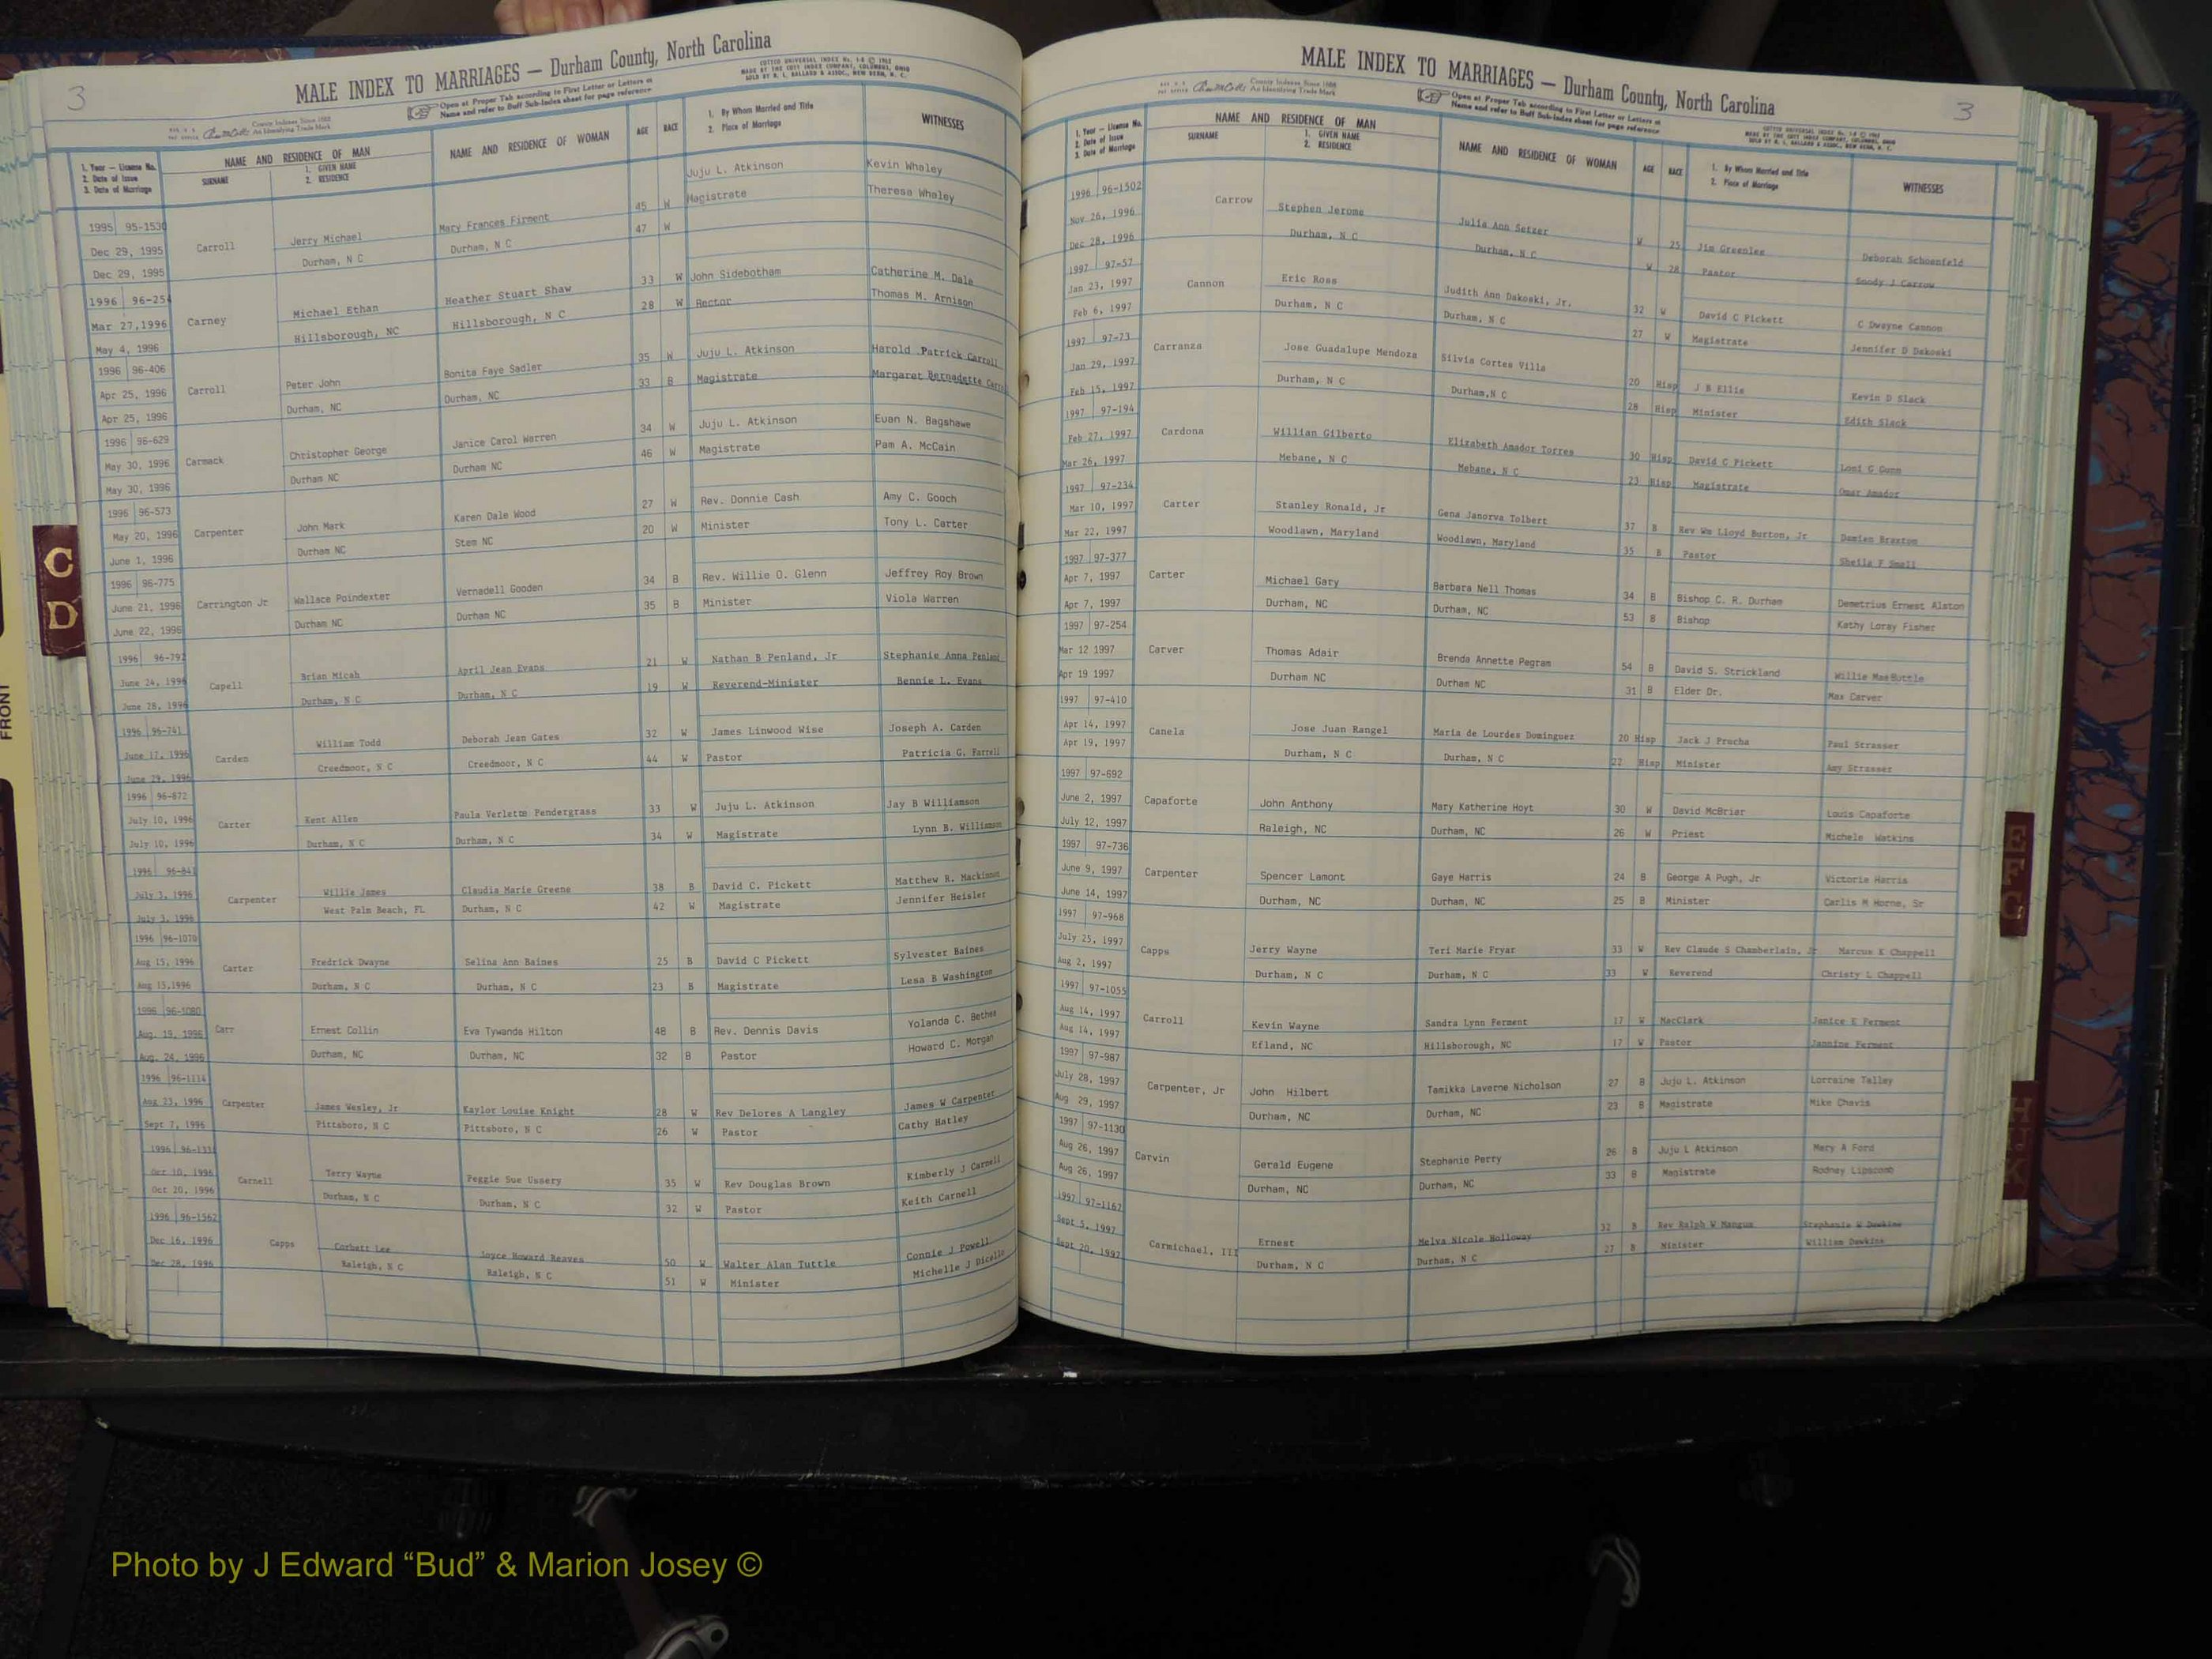 3
MALE INDEX TO MARRIAGES — Durham County, North Carolina
Open at Proper Tab according to First Letter or Letters of
Name and refer to Buff Sub-Index sheet for page reference
COTTCO UNIVERSAL INDEX No. 1-8 © 1962
MADE BY THE COTT INDEX COMPANY, COLUMBUS, OHIO
SOLD BY R. L. BALLARD & ASSOC., NEW BERN, N. C.
County Indexes Since 1888
An Identifying Trade Mark
1. Year — License No. 2. Date of Issue 3. Date of Marriage
NAME AND RESIDENCE OF MAN
SURNAME 1. GIVEN NAME 2. RESIDENCE
NAME AND RESIDENCE OF WOMAN
AGE RACE
1. By Whom Married and Title
2. Place of Marriage
WITNESSES
1995 95-1530 Carroll Jerry Michael Mary Frances Firment 45 W Juju L. Atkinson Kevin Whaley
Dec 29, 1995 Durham, N C Durham, N C 47 W Magistrate Theresa Whaley
Dec 29, 1995
1996 96-254 Carney Michael Ethan Heather Stuart Shaw 33 W John Sidebotham Catherine M. Dale
Mar 27,1996 Hillsborough, NC Hillsborough, N C 28 W Rector Thomas M. Arnison
May 4, 1996
1996 96-406 Carroll Peter John Bonita Faye Sadler 35 W Juju L. Atkinson Harold Patrick Carroll
Apr 25, 1996 Durham, NC Durham, NC 33 B Magistrate Margaret Bernadette
Apr 25, 1996
1996 96-629 Carmack Christopher George Janice Carol Warren 34 W Juju L. Atkinson Euan N. Bagshawe
May 30, 1996 Durham NC Durham NC 46 W Magistrate Pam A. McCain
May 30, 1996
1996 96-573 Carpenter John Mark Karen Dale Wood 27 W Rev. Donnie Cash Amy C. Gooch
May 20, 1996 Durham NC Stem NC 20 W Minister Tony L. Carter
June 1, 1996
1996 96-775 Carrington Jr Wallace Poindexter Vernadell Gooden 34 B Rev. Willie O. Glenn Jeffrey Roy Brown
June 21, 1996 Durham NC Durham NC 35 B Minister Viola Warren
June 22, 1996
1996 96-792 Capell Brian Micah April Jean Evans 21 W Nathan B Penland, Jr Stephanie Anna Penland
June 24, 1996 Durham, N C Durham, N C 19 W Reverend-Minister Bennie L. Evans
June 28, 1996
1996 96-741 Carden William Todd Deborah Jean Gates 32 W James Linwood Wise Joseph A. Carden
June 17, 1996 Creedmoor, N C Creedmoor, N C 44 W Pastor Patricia G. Farrell
June 29, 1996
1996 96-872 Carter Kent Allen Paula Verlette Pendergrass 33 W Juju L. Atkinson Jay B Williamson
July 10, 1996 Durham, N C Durham, N C 34 W Magistrate Lynn B. Williamson
July 10, 1996
1996 96-841 Carpenter Willie James Claudia Marie Greene 38 B David C. Pickett Matthew R. Mackinnon
July 3, 1996 West Palm Beach, FL Durham, N C 42 W Magistrate Jennifer Heisler
July 3, 1996
1996 96-1070 Carter Fredrick Dwayne Selina Ann Baines 25 B David C Pickett Sylvester Baines
Aug 15, 1996 Durham, N C Durham, N C 23 B Magistrate Lesa B Washington
Aug 15,1996
1996 96-1080 Carr Ernest Collin Eva Tywanda Hilton 48 B Rev. Dennis Davis Yolanda C. Bethea
Aug. 19, 1996 Durham, NC Durham, NC 32 B Pastor Howard C. Morgan
Aug. 24, 1996
1996 96-1114 Carpenter James Wesley, Jr Kaylor Louise Knight 28 W Rev Delores A Langley James W Carpenter
Aug 23, 1996 Pittsboro, N C Pittsboro, N C 26 W Pastor Cathy Hatley
Sept 7, 1996
1996 96-1331 Carnell Terry Wayne Peggie Sue Ussery 35 W Rev Douglas Brown Kimberly J Carnell
Oct 10, 1996 Durham, N C Durham, N C 32 W Pastor Keith Carnell
Oct 20, 1996
1996 96-1562 Capps Corbett Lee Joyce Howard Reaves 50 W Walter Alan Tuttle Connie J Powell
Dec 16, 1996 Raleigh, N C Raleigh, N C 51 W Minister Michelle J Dicello
Dec 28, 1996
C
D
FRONT
3
MALE INDEX TO MARRIAGES — Durham County, North Carolina
County Indexes Since 1888
An Identifying Trade Mark
Open at Proper Tab according to First Letter or Letters of
Name and refer to Buff Sub-Index sheet for page reference
COTTCO UNIVERSAL INDEX No. 1-8 © 1962
MADE BY THE COTT INDEX COMPANY, COLUMBUS, OHIO
SOLD BY R. L. BALLARD & ASSOC., NEW BERN, N. C.
1. Year — License No. 2. Date of Issue 3. Date of Marriage
NAME AND RESIDENCE OF MAN
SURNAME 1. GIVEN NAME 2. RESIDENCE
NAME AND RESIDENCE OF WOMAN
AGE RACE
1. By Whom Married and Title
2. Place of Marriage
WITNESSES
1996 96-1502 Carrow Stephen Jerome Julia Ann Setzer W 25 Jim Greenlee Deborah Schoenfeld
Nov 26, 1996 Durham, N C Durham, N C W 28 Pastor Carrow
Dec 28, 1996
1997 97-57 Cannon Eric Ross Judith Ann Dakoski, Jr. 32 W David C Pickett C Dwayne Cannon
Jan 23, 1997 Durham, N C Durham, N C 27 W Magistrate Jennifer D Dakoski
Feb 6, 1997
1997 97-73 Carranza Jose Guadalupe Mendoza Silvia Cortes Villa 20 Hisp J B Ellis Kevin D Slack
Jan 29, 1997 Durham, N C Durham,N C 28 Hisp Minister Edith Slack
Feb 15, 1997
1997 97-194 Cardona Willian Gilberto Elizabeth Amador Torres 30 Hisp David C Pickett Loni G Gunn
Feb 27, 1997 Mebane, N C Mebane, N C 23 Hisp Magistrate Omar Amador
Mar 26, 1997
1997 97-234 Carter Stanley Ronald, Jr Gena Janorva Tolbert 37 B Rev Wm Lloyd Burton, Jr Damien Braxton
Mar 10, 1997 Woodlawn, Maryland Woodlawn, Maryland 35 B Pastor Sheila F Small
Mar 22, 1997
1997 97-377 Carter Michael Gary Barbara Nell Thomas 34 B Bishop C. R. Durham Demetrius Ernest Alston
Apr 7, 1997 Durham, NC Durham, NC 53 B Bishop Kathy Loray Fisher
Apr 7, 1997
1997 97-254 Carver Thomas Adair Brenda Annette Pegram 54 B David S. Strickland Willie Mae Suttle
Mar 12 1997 Durham NC Durham NC 31 B Elder Dr. Max Carver
Apr 19 1997
1997 97-410 Canela Jose Juan Rangel Maria de Lourdes Dominguez 20 Hisp Jack J Procha Paul Strasser
Apr 14, 1997 Durham, N C Durham, N C 22 Hisp Minister Amy Strasser
Apr 19, 1997
1997 97-692 Capaforte John Anthony Mary Katherine Hoyt 30 W David McBriar Louis Capaforte
June 2, 1997 Raleigh, NC Durham, NC 26 W Priest Michele Watkins
July 12, 1997
1997 97-736 Carpenter Spencer Lamont Gaye Harris 24 B George A Pugh, Jr Victoria Harris
June 9, 1997 Durham, NC Durham, NC 25 B Minister Carlis M Horne, Sr
June 14, 1997
1997 97-968 Capps Jerry Wayne Teri Marie Fryar 33 W Rev Claude S Chamberlain, Jr Marcus K Chappell
July 25, 1997 Durham, N C Durham, N C 33 W Reverend Christy L Chappell
Aug 2, 1997
1997 97-1055 Carroll Kevin Wayne Sandra Lynn Ferment 17 W MacClark Janice E Ferment
Aug 14, 1997 Efland, NC Hillsborough, NC 17 W Pastor Jannine Ferment
Aug 14, 1997
1997 97-987 Carpenter, Jr John Hilbert Tamikka Laverne Nicholson 27 B Juju L. Atkinson Lorraine Talley
July 28, 1997 Durham, NC Durham, NC 23 B Magistrate Mike Chavis
Aug 29, 1997
1997 97-1130 Carvin Gerald Eugene Stephanie Perry 26 B Juju L Atkinson Mary A Ford
Aug 26, 1997 Durham, NC Durham, NC 33 B Magistrate Rodney Lipscomb
Aug 26, 1997
1997 97-1162 Carmichael, III Ernest Melva Nicole Holloway 32 B Rev Ralph W Mangum Stephanie W Dawkins
Sept 5, 1997 Durham, N C Durham, N C 27 B Minister William Dawkins
Sept 20, 1997
E F G
H
Photo by J Edward “Bud” & Marion Josey ©